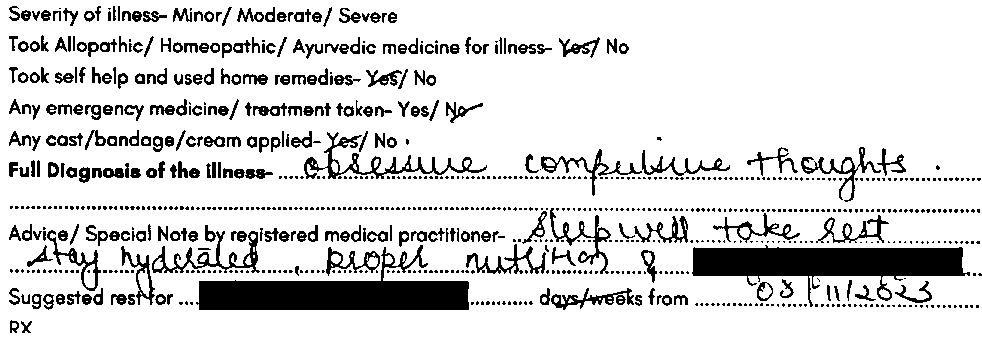 Severity of illness- Minor/ Moderate/ Severe
Took Allopathic/ Homeopathic/ Ayurvedic medicine for illness- Yes/ No
Took self help and used home remedies- Yes/ No
Any emergency medicine/ treatment taken- Yes/ No
Any cast/bandage/cream applied- Yes/ No .
Full Diagnosis of the illness- obsessive compulsive thoughts .
Advice/ Special Note by registered medical practitioner- sleep well take rest
stay hyderated , proper nutrition &
Suggested rest for days/weeks from 03/11/2023
RX